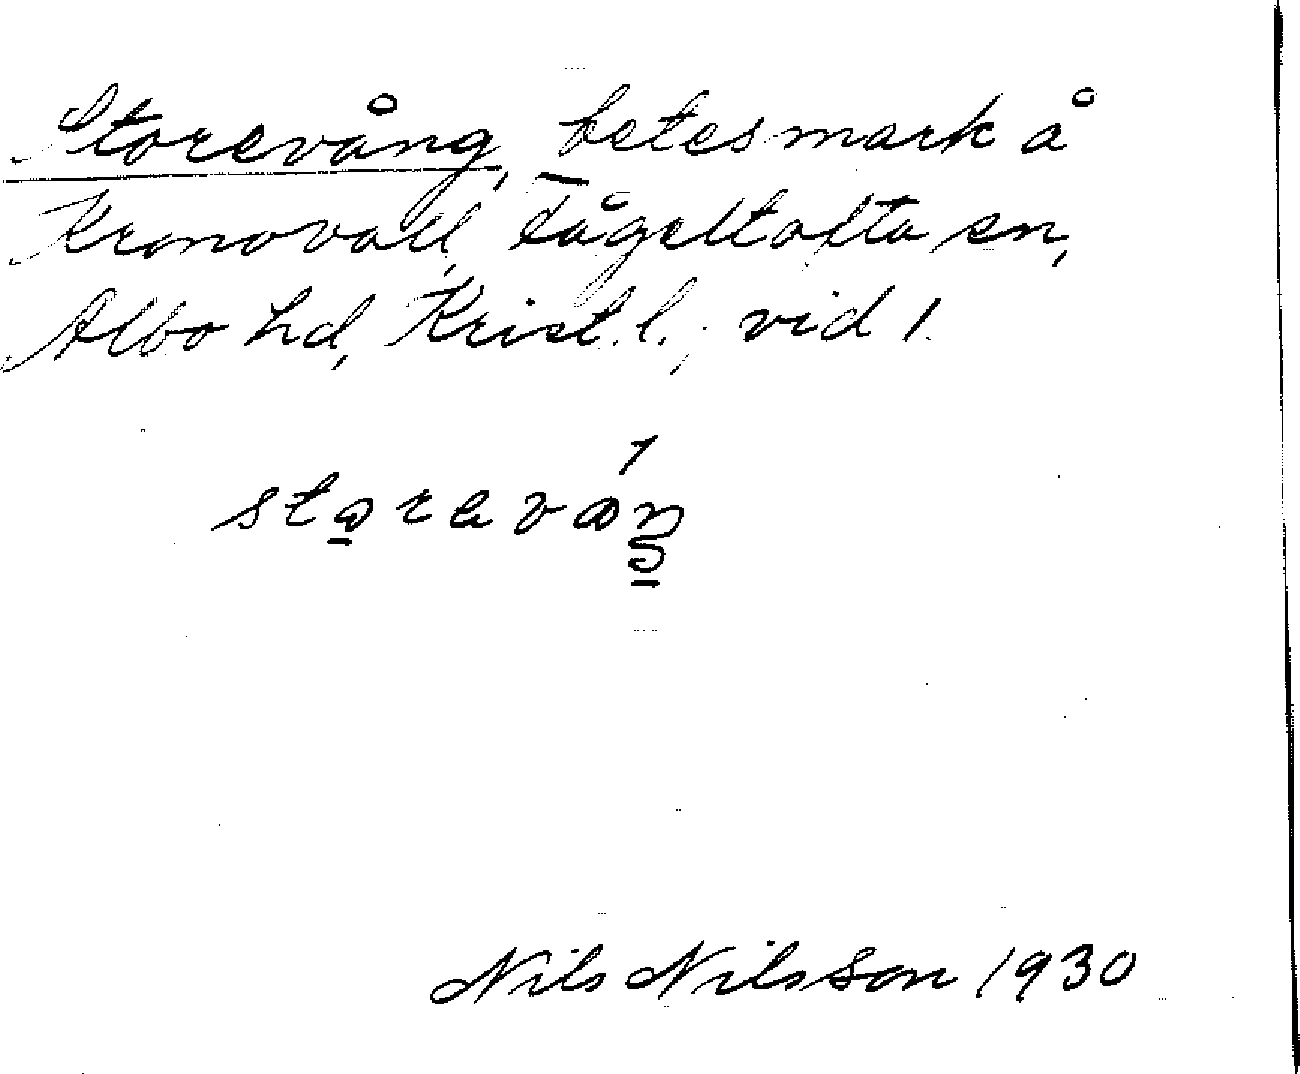 Storevång, betesmark å
Kronovall, Fågeltofta sn,
Albo hd, Krist. l.; vid 1.
Nils Nilsson 1930